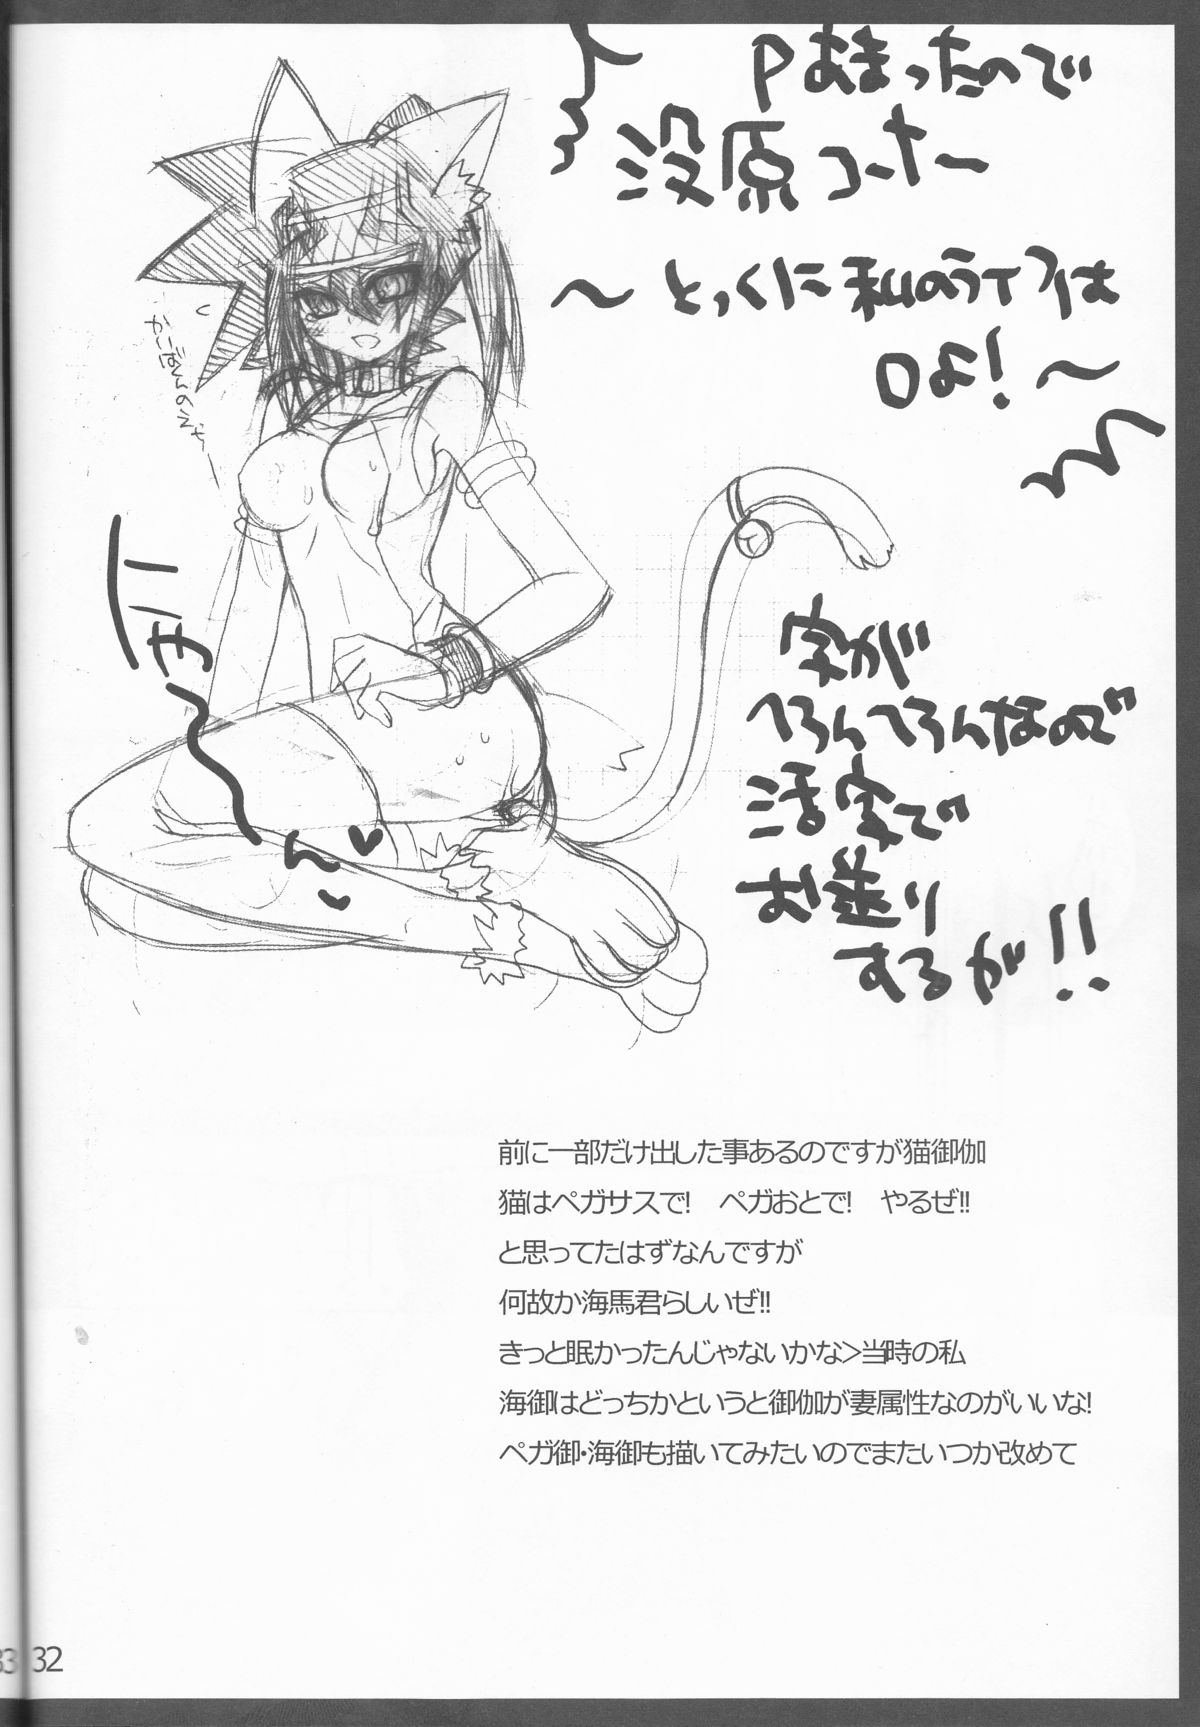 Pあまったので
没原コーナー
～とっくに私のライフは
0よ！～
かいばんのえやー
にゃ～ん
字が
へろんへろんなので
活字で
お送り
するが!!
前に一部だけ出した事あるのですが猫御伽
猫はペガサスで!　ペガおとで!　やるぜ!!
と思ってたはずなんですが
何故か海馬君らしいぜ!!
きっと眠かったんじゃないかな>当時の私
海御はどっちかというと御伽が妻属性なのがいいな!
ペガ御・海御も描いてみたいのでまたいつか改めて
33 32